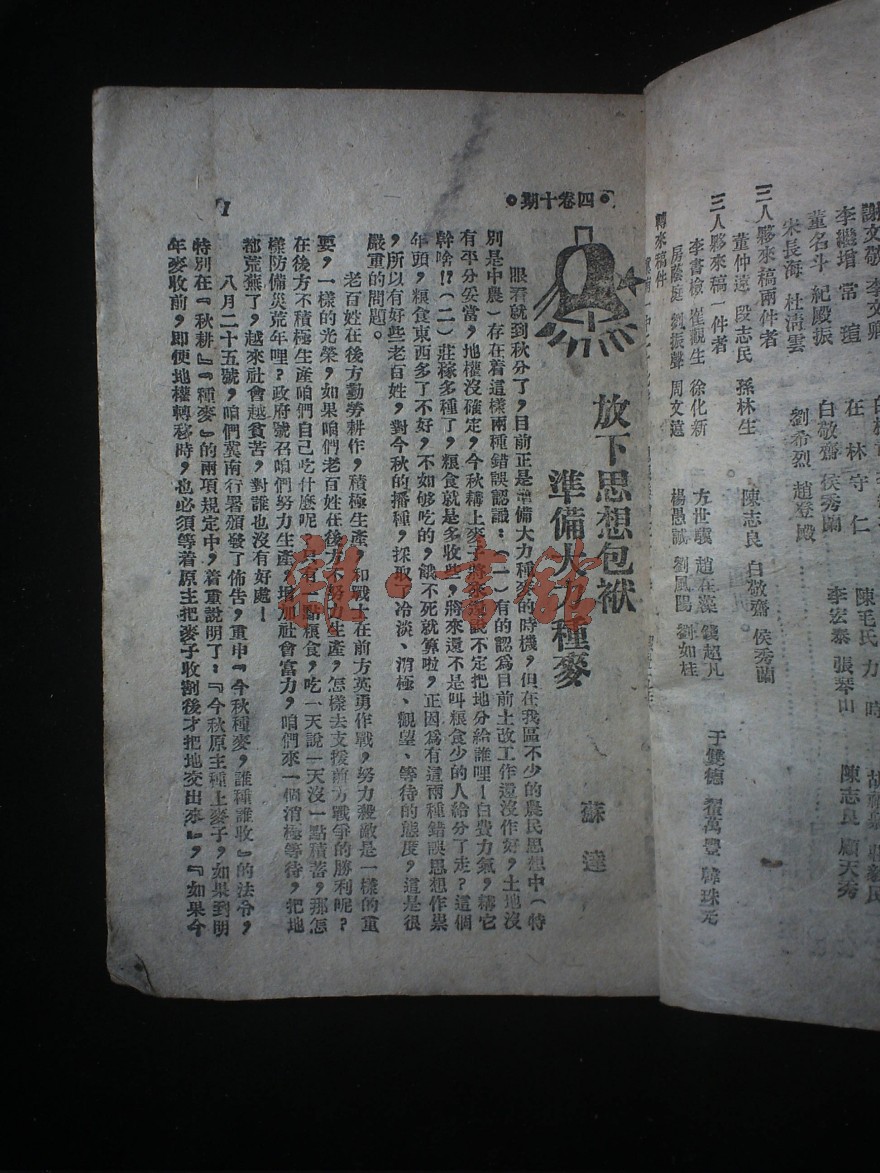 謝文敬 李文卿
李繼增 常瑄
董名斗 紀殿振
宋長海 杜清雲
三人夥來稿兩件者
董仲遠 段志民 孫林生
三人夥來稿一件者
李書檢 崔觀生 徐化新
房蔭庭 劉振聲 周文遠
轉來稿件
在林守仁
白敬齋 侯秀蘭
劉希烈 趙登殿
陳志良 白敬齋 侯秀蘭
方世 趙在 錢超凡
楊愚誠 劉風閣 劉如桂
陳毛氏 力時
李宏泰 張琴山
陳志良 顧天秀
于雙德 翟萬豐 韓珠元
四卷十期
放下思想包袱
準備大力種麥
蘇達
眼看就到秋分了,目前正是準備大力種麥的時機,但在我區不少的農民思想中(特
別是中農)存在着這樣兩種錯誤認識:(一)有的認爲目前土改工作還沒作好,土地沒
有平分妥當,地權沒確定,今秋耩上麥子將來還說不定把地分給誰哩!白費力氣,耩它
幹啥!?(二)莊稼多種了,粮食就是多收些,將來還不是叫粮食少的人給分了走?這個
年頭,粮食東西多了不好,不如够吃的,餓不死就算啦,正因爲有這兩種錯誤思想作祟
,所以有好些老百姓,對今秋的播種,採取了冷淡、消極、觀望、等待的態度,這是很
嚴重的問題。
老百姓在後方勤勞耕作,積極生產,和戰士在前方英勇作戰,努力殺敵是一樣的重
要,一樣的光榮,如果咱們老百姓在後方不努力生產,怎樣去支援前方戰爭的勝利呢?
在後方不積極生產咱們自己吃什麼呢?只有一點粮食,吃一天說一天沒一點積蓄,那怎
樣防備災荒年哩?政府號召咱們努力生產,增加社會富力,咱們來一個消極等待,把地
都荒蕪了,越來社會越貧苦,對誰也沒有好處!
八月二十五號,咱們冀南行署頒發了佈告,重申『今秋種麥,誰種誰收』的法令,
特別在『秋耕』『種麥』的兩項規定中,着重說明了:『今秋原主種上麥子,如果到明
年麥收前,即便地權轉移時,也必須等着原主把麥子收割後才把地交出來』,『如果今
1